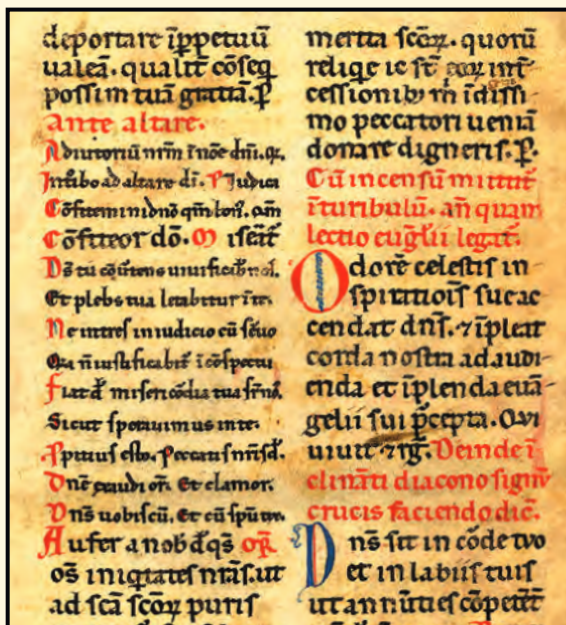 deportare ĩppetuũ
ualeã. qualit̃ cõseq
possim tuã gratiã. P̲
Ante altare.
Adiutoriũ nr̃m ĩ nõe dñi. q̃.
Introibo ad altare dĩ. P̃ Iudica
Cõfitemini dnõ qm̃ bon̄. qm̃
Cõfiteor dõ. M iseat̃
Ds̃ tu
Et plebs tua letabitur ĩ te.
Ne intres in iudicio cũ s̃uo
Q̃a ñ iustificabit̃ ĩ cõspectu
Fiat d̃ misericõdia tua
Sicut sperauimus inte.
pitius esto. peccatis nr̃is d̃.
Dñe exaudi oñ. Et clamor.
Dñs uobiscũ. Et cũ sp̃u tuo.
Aufer a nob d̃qs̃ oR̃
os̃ iniqitates nr̃as. ut
ad sc̃a sc̃oꝝ puris
merita sc̃oꝝ. quorũ
reliqe ic st̃ eoꝝ int̃
cessionibꝫ m̃ ĩdissi
mo peccatori ueniã
donare digneris. P̲.
Cũ incensũ mittit̃
ĩturibulũ. añ quam
lectio euglĩi legat̃.
Odorẽ celestis in
spiratiois̃ sue ac
cendat dñs. ⁊ ĩpleat
corda nostra ad audi
enda et ĩplenda euã
gelii sui p̃cepta. Qui
uiuit ⁊ rg̃. Deinde ĩ
clinãti diacono signũ
crucis faciendo dic̃.
Dñs sit in cõde tuo
et in labiis tuis
ut annũties cõpetẽt̃